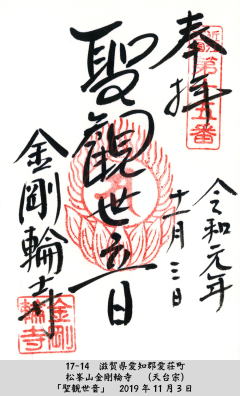 奉拝
第十五番
聖観世音
令和元年
十一月三日
金剛輪寺
金剛
輪寺
17-14 滋賀県愛知郡愛荘町
松峯山金剛輪寺 (天台宗)
「聖観世音」 2019年11月3日